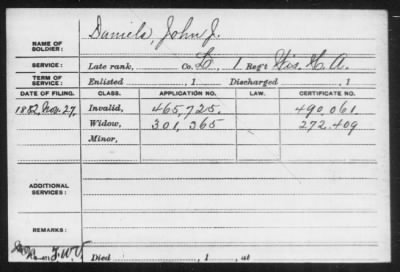 NAME OF SOLDIER: Daniels, John J.
SERVICE: Late rank, Co. L, 1 Reg't Wis. H. A.
TERM OF SERVICE: Enlisted , 1 Discharged , 1
DATE OF FILING. CLASS. APPLICATION NO. LAW. CERTIFICATE NO.
1882, Nov. 27, Invalid, 465,725. 490,061.
Widow, 301,365 272,409
Minor,
ADDITIONAL SERVICES:
REMARKS:
Died , 1 , at